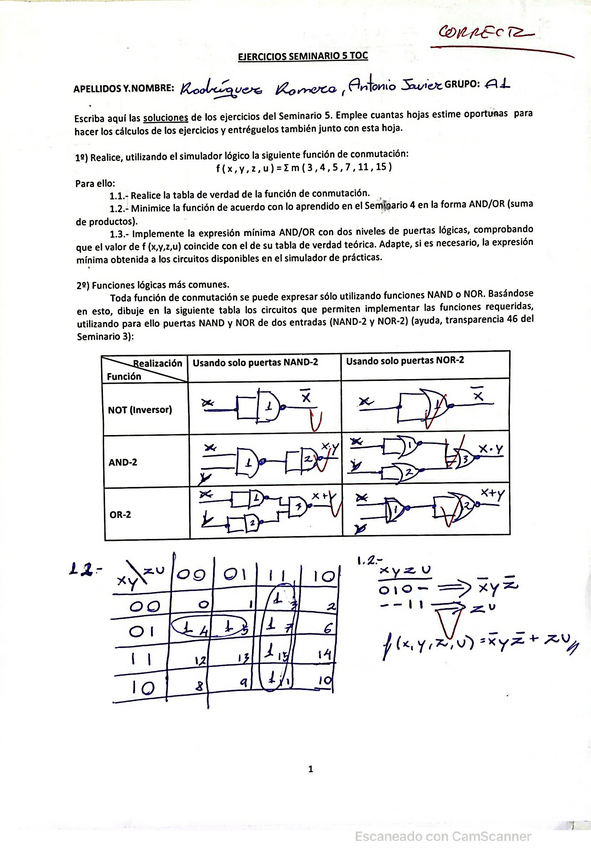 CORRECTO
EJERCICIOS SEMINARIO 5 TOC
APELLIDOS Y.NOMBRE: Rodríguez Romero, Antonio Javier GRUPO: A1
Escriba aquí las soluciones de los ejercicios del Seminario 5. Emplee cuantas hojas estime oportunas para
hacer los cálculos de los ejercicios y entréguelos también junto con esta hoja.
1º) Realice, utilizando el simulador lógico la siguiente función de conmutación:
f ( x , y , z , u ) = Σ m ( 3 , 4 , 5 , 7 , 11 , 15 )
Para ello:
1.1.- Realice la tabla de verdad de la función de conmutación.
1.2.- Minimice la función de acuerdo con lo aprendido en el Seminario 4 en la forma AND/OR (suma
de productos).
1.3.- Implemente la expresión mínima AND/OR con dos niveles de puertas lógicas, comprobando
que el valor de f (x,y,z,u) coincide con el de su tabla de verdad teórica. Adapte, si es necesario, la expresión
mínima obtenida a los circuitos disponibles en el simulador de prácticas.
2º) Funciones lógicas más comunes.
Toda función de conmutación se puede expresar sólo utilizando funciones NAND o NOR. Basándose
en esto, dibuje en la siguiente tabla los circuitos que permiten implementar las funciones requeridas,
utilizando para ello puertas NAND y NOR de dos entradas (NAND-2 y NOR-2) (ayuda, transparencia 46 del
Seminario 3):
Realización Usando solo puertas NAND-2 Usando solo puertas NOR-2
Función
NOT (Inversor) x 1 x̅ x 1 x̅
AND-2 x y 1 2 x·y x y 1 2 3 x·y
OR-2 x y 1 2 3 x+y x y 1 2 x+y
1.2.- xy zu 00 01 11 10
00 0 1 1 3 2
01 1 4 1 5 1 7 6
11 12 13 1 15 14
10 8 9 1 11 10
1.2.-
x y z u
010- ⟹ x̅yz̅
--11 ⟹ zu
f(x,y,z,u) = x̅yz̅ + zu
1
Escaneado con CamScanner